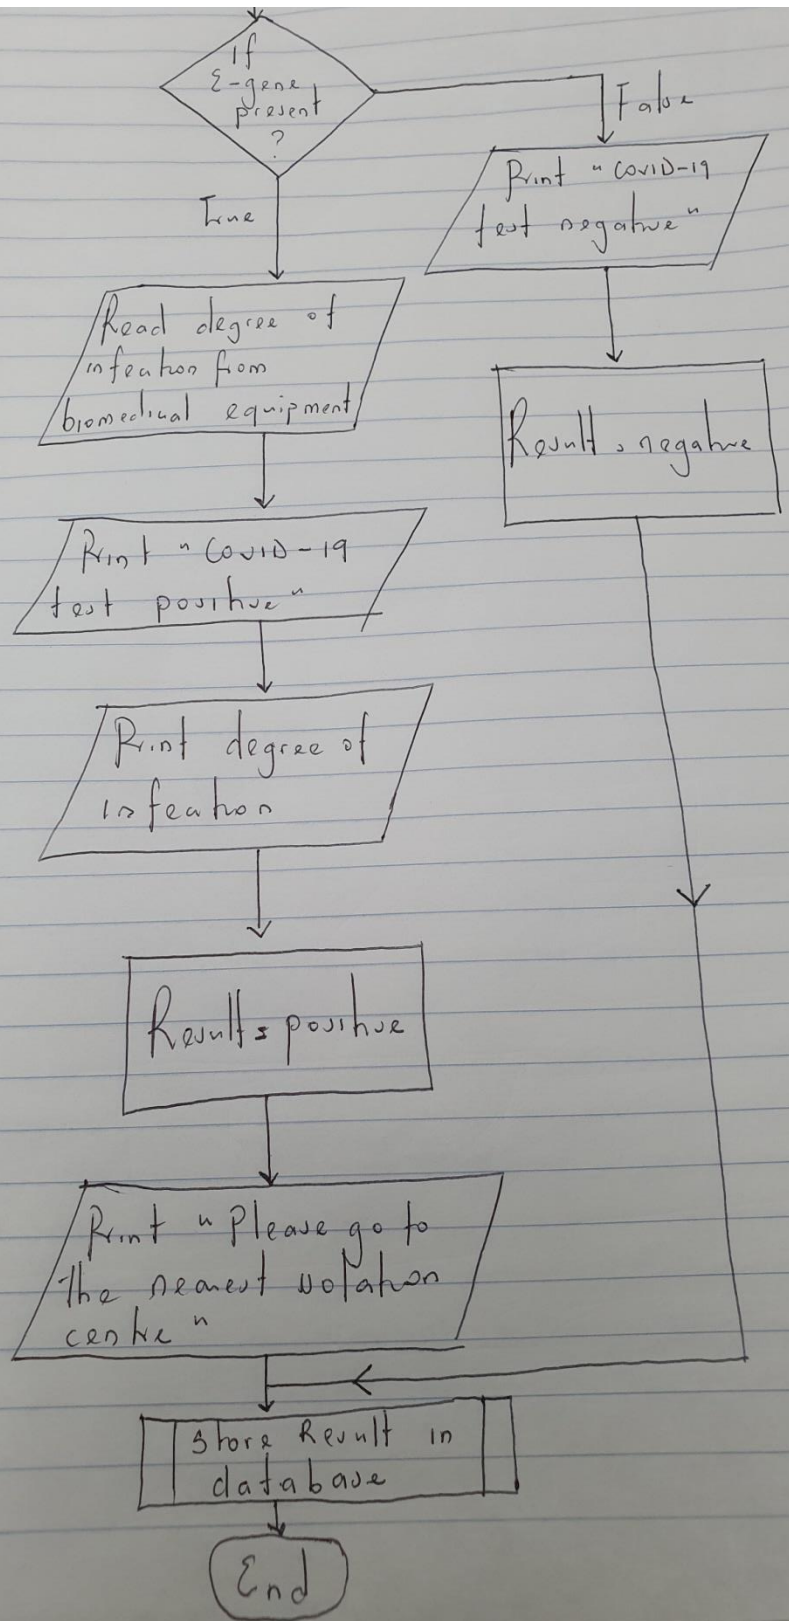 If
E-gene
present
?
False
True
Print "COVID-19
test negative"
Read degree of
infection from
biomedical equipment
Result = negative
Print "COVID-19
test positive"
Print degree of
infection
Result = positive
Print "Please go to
the nearest isolation
centre"
Store Result in
database
End